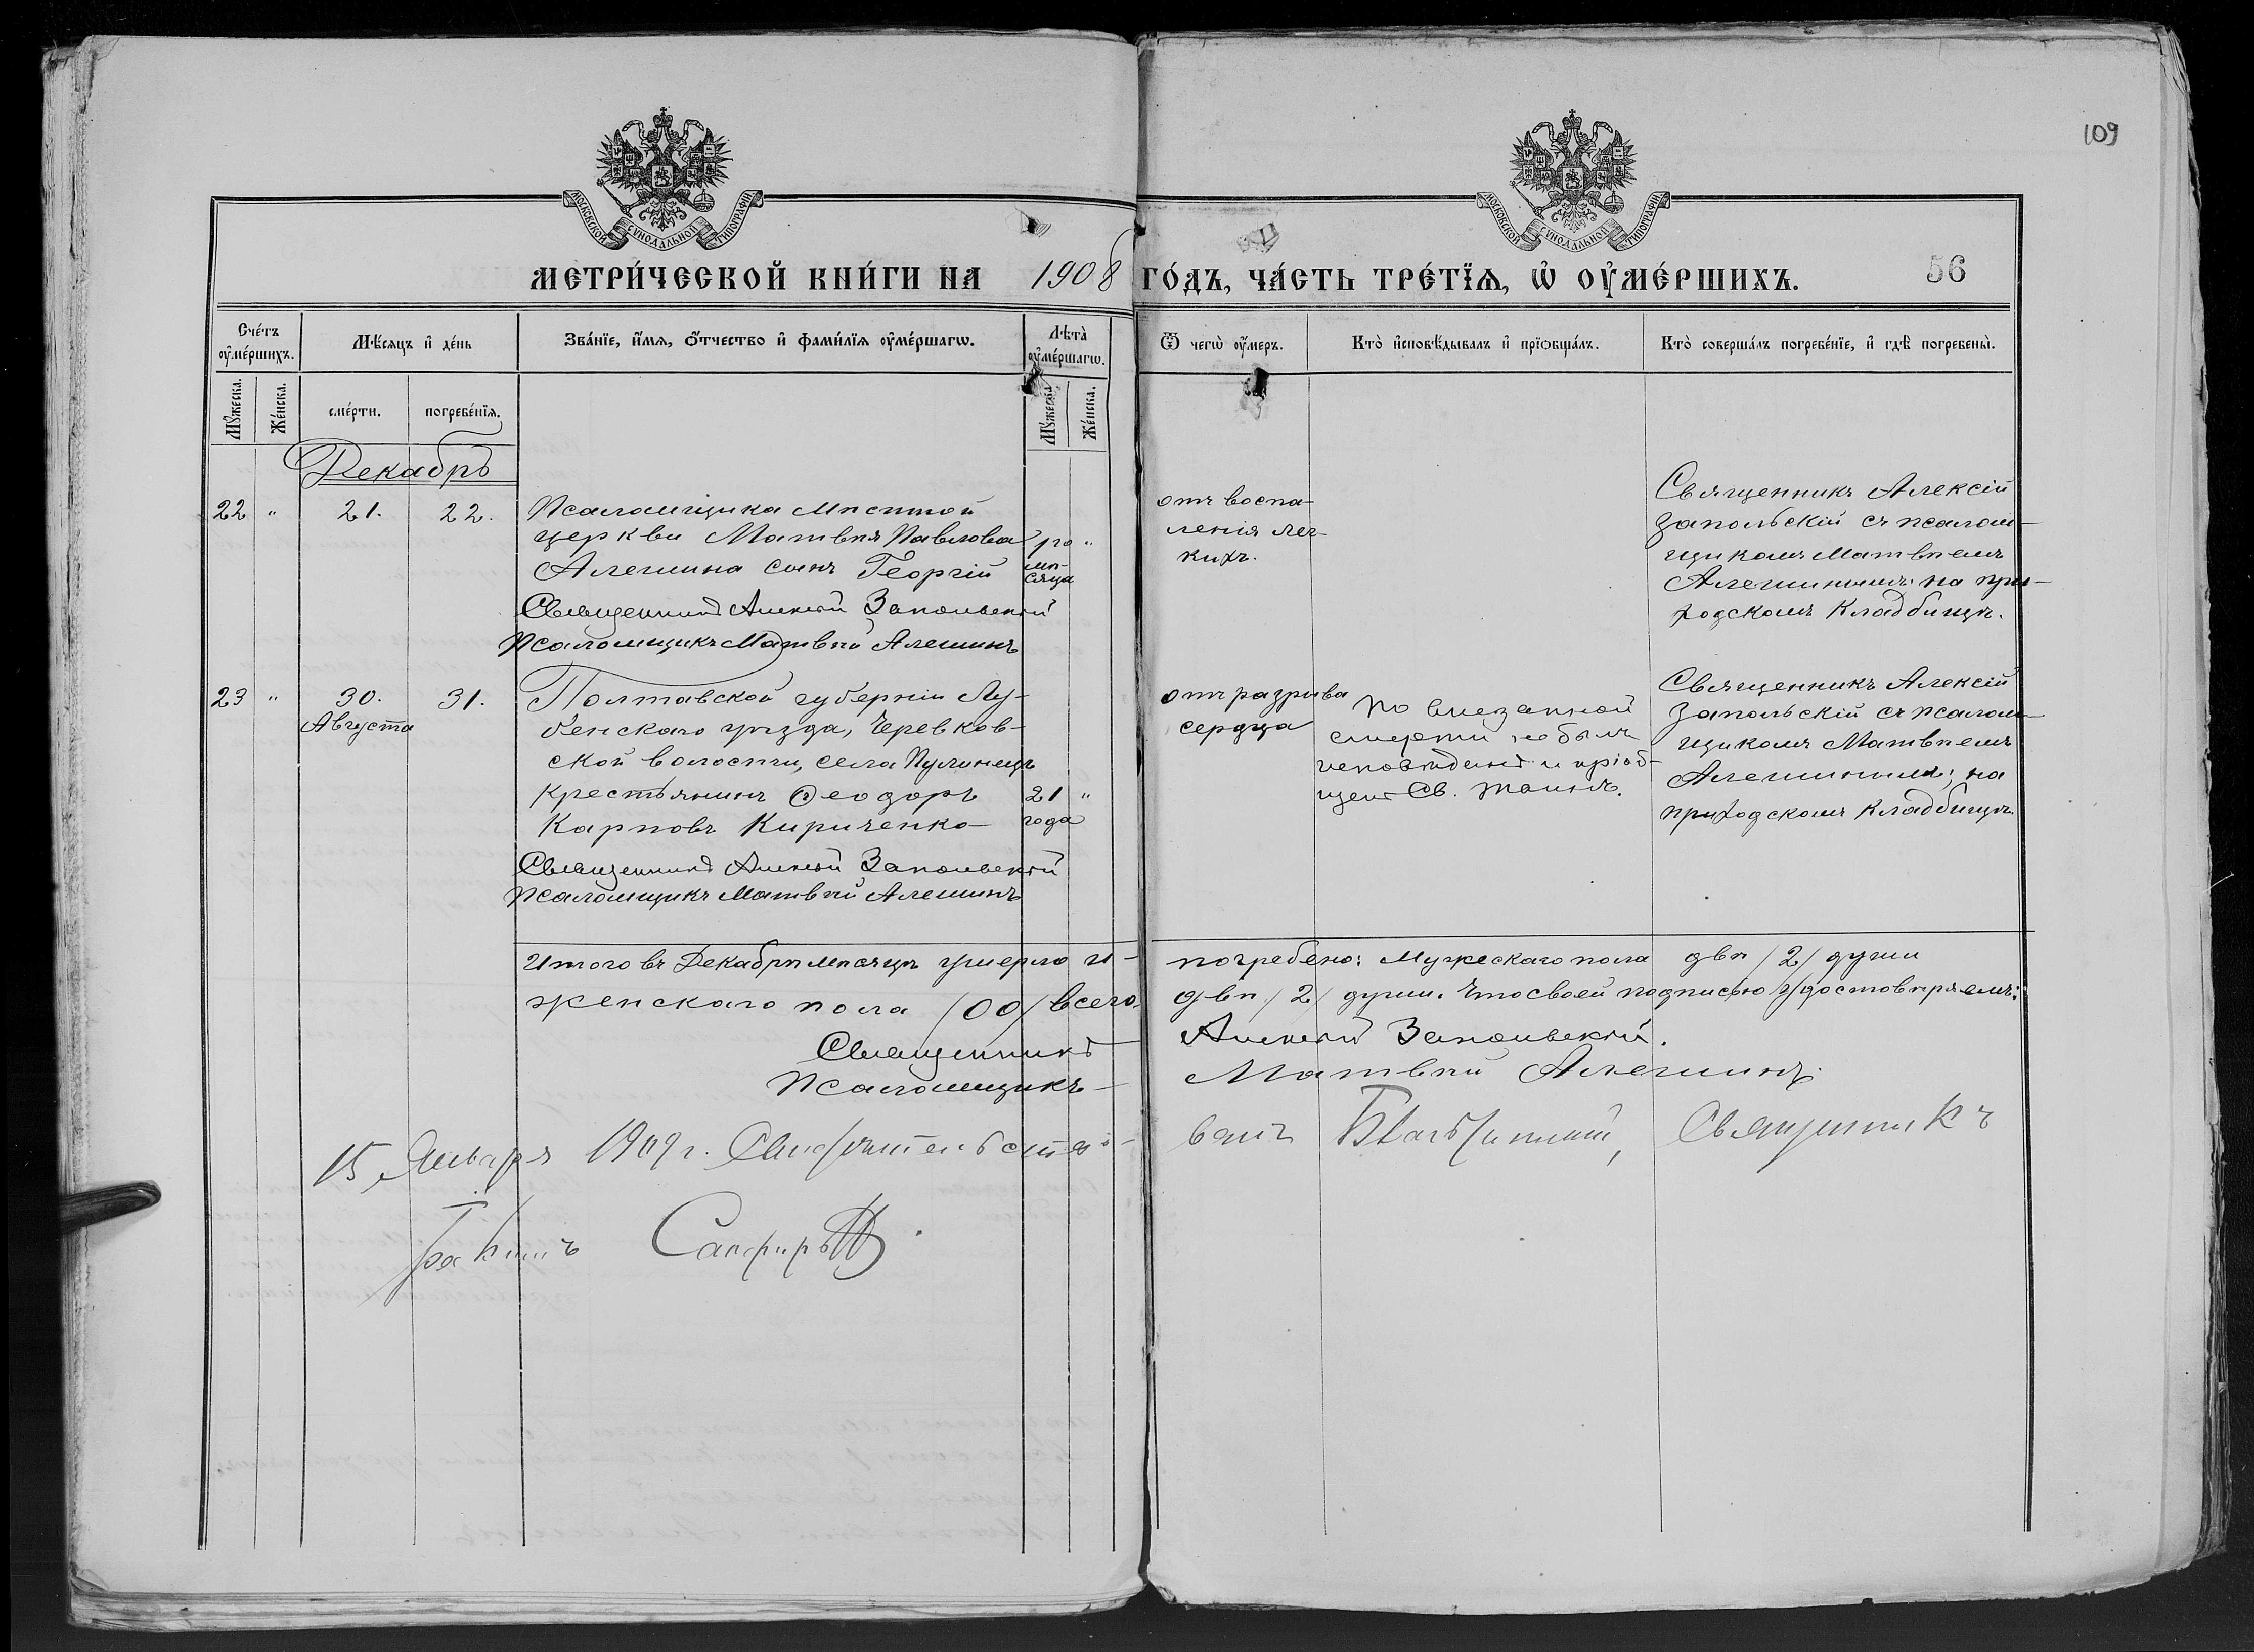 109
МОСКОВСКОЙ СѴНОДАЛЬНОЙ ТИПОГРАФІИ.
МОСКОВСКОЙ СѴНОДАЛЬНОЙ ТИПОГРАФІИ.
МЕТРИ́ЧЕСКОЙ КНИ́ГИ НА 1908 ГО́ДЪ, ЧА́СТЬ ТРЕ́ТЇѦ, Ѡ҆ ОУ҆МЕ́РШИХЪ. 56
Сче́тъ оу҆ме́ршихъ.
Мѣ́сяцъ и҆ де́нь
Зва́нїе, и҆́мѧ, ѻ҆́тчество и҆ фами́лїѧ оу҆ме́ршагѡ.
Лѣта̀ оу҆ме́ршагѡ.
Ѿ чегѡ̀ оу҆́меръ.
Кто̀ и҆сповѣ́дывалъ и҆ прїѡбща́лъ.
Кто̀ соверша́лъ погребе́нїе, и҆ гдѣ̀ погребены̀.
Мꙋ́жеска.
Же́нска.
сме́рти.
погребе́нїѧ.
Мꙋ́жеска
Же́нска.
Декабрь
22 " 21. 22.
Псаломщика мѣстной
церкви Матвѣя Павлова
Алешина сынъ Георгій
мѣ-
сяца
Священникъ Алексѣй Запольскій
Псаломщикъ Матвѣй Алешинъ
отъ воспа-
ленія лег-
кихъ.
Священникъ Алексій
Запольскій съ псалом-
щикомъ Матвѣемъ
Алешинымъ: на при-
ходскомъ кладбищѣ.
23 " 30. 31.
Августа
Полтавской губерніи Лу-
бенскаго уѣзда, Черевков-
ской волости, села Пулинецъ
крестьянинъ Ѳеодоръ
Карповъ Кириченко
21 "
года
Священникъ Алексѣй Запольскій
Псаломщикъ Матвѣй Алешинъ
отъ разрыва
сердца
По внезапной
смерти не былъ
исповѣданъ и пріоб-
щенъ Св. Таинъ.
Священникъ Алексій
Запольскій съ псалом-
щикомъ Матвѣемъ
Алешинымъ; на
приходскомъ кладбищѣ.
Итого въ Декабрѣ мѣсяцѣ умерло и погребено: мужескаго пола двѣ /2/ души
женскаго пола /00/ всего двѣ /2/ души. Что своей подписью удостовѣряемъ:
Священникъ Алексѣй Запольскій.
Псаломщикъ Матвѣй Алешинъ.
15 Января 1909 г. Свидѣтельство-
валъ Благочинный, Священникъ